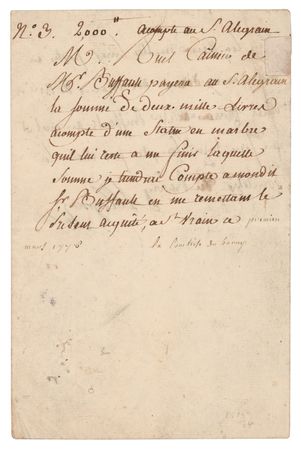 N.º 3. 2000" acompte au Sr. Alegrain
M. Caissier de
Mr. Buffault payera au Sr. Alegrain
la somme de deux mille Livres
acompte d'une Statue en marbre
quil lui reste a finir laquelle
somme je tiendrai Compte a mondit
Sr. Buffault en me remettant le
présent acquité, a St Vrain ce premier
mars 1778 la Comtesse du barry